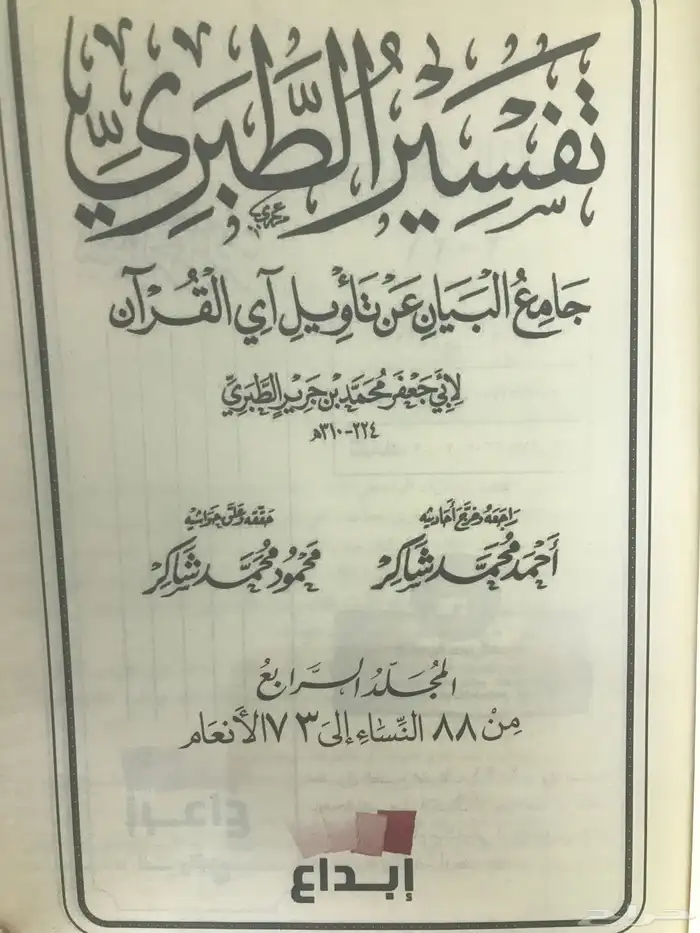 تَفْسِيرُ الطَّبَرِيِّ
جَامِعُ الْبَيَانِ عَنْ تَأْوِيلِ آيِ الْقُرْآن
لِأَبِي جَعْفَر مُحَمَّد بْن جَرِيرٍ الطَّبَرِيِّ
٢٢٤-٣١٠هـ
رَاجَعَهُ وَخَرَّجَ أَحَادِيثَهُ
أَحْمَد مُحَمَّد شَاكِرْ
حَقَّقَهُ وَعَلَّقَ حَوَاشِيَهُ
مَحْمُود مُحَمَّد شَاكِرْ
المُجَلَّدُ السَّرابعُ
مِنْ ٨٨ النِّسَاءِ إِلَى ٧٣ الأَنعَام
إبداع